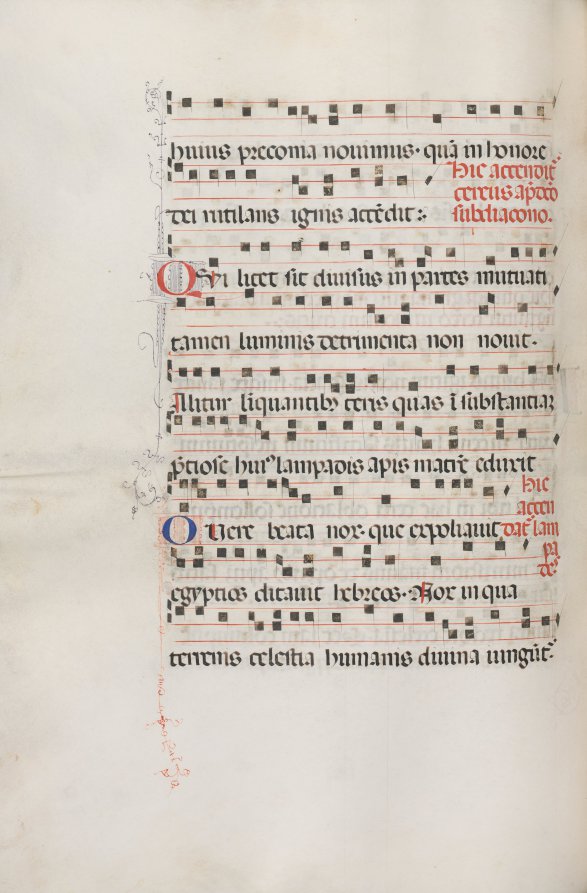 huius preconia nouimus. quā in honore
dei rutilans ignis accēdit:
Hic accendit̄
cereus ap̄do
subdiacono.
QVi licet sit diuisus in partes mutuati
tamen luminis detrimenta non nouit.
Alitur liquantib; ceris quas ī substantiaꝫ
p̄tiose hui⁹ lampadis apis mater eduxit
Hic
accen
dāt lam
pa
des
O Uere beata nox. que expoliauit
egyptios ditauit hebreos. Nox in qua
terrenis celestia humanis diuina iungūt̄.